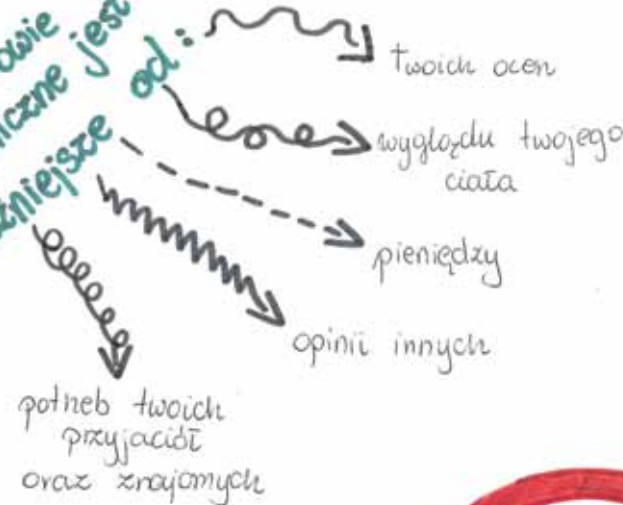 owie
iczne jest
żniejsze od:
twoich ocen
wyglądu twojego
ciała
pieniędzy
opinii innych
potrzeb twoich
przyjaciół
oraz znajomych